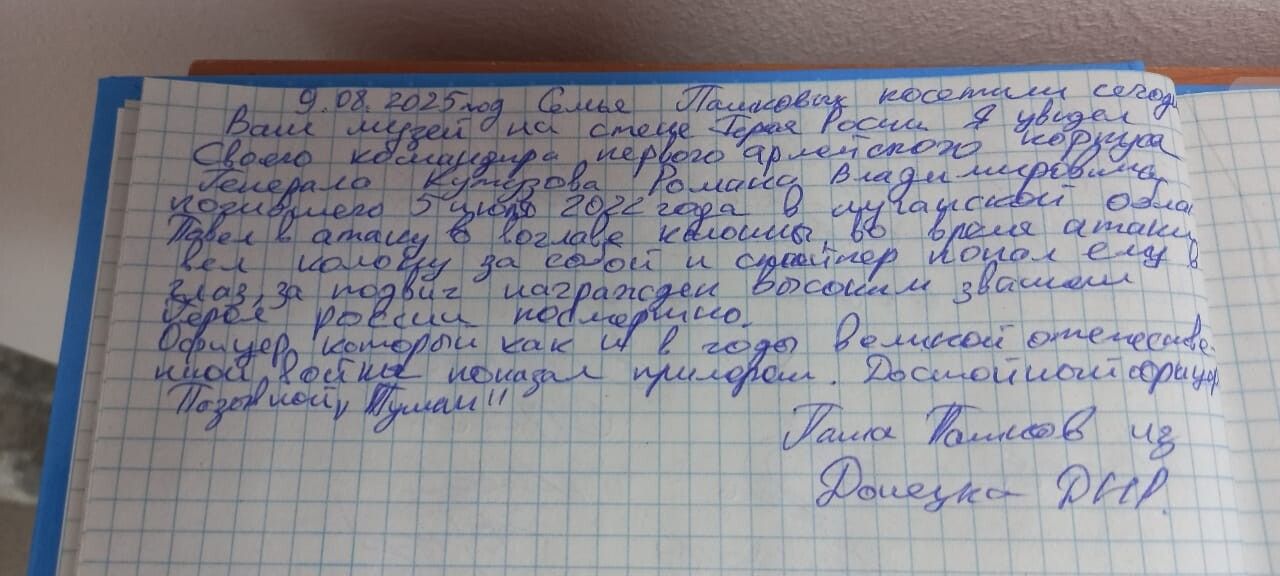 9.08.2025год Семья Пашковых посетили сегод
Ваш музей на стенде Героя Росии Я увидел
Своего командира первого армейского корпуса
Генерала Кутузова Романа Владимировича
погившего 5 июня 2022 года в луганской обла
Повел в атаку в воглаве колонны, во время атаки
вел колонну за собой и снайпер попал ему в
глаз, за подвиг награжден высоким званием
Героя россии посмертно.
Офицер, который как и в годы Великой отечестве-
нной Войны показал примером. Достойный офицер
Позывной „Туман"
Паша Пашков из
Донецка ДНР.